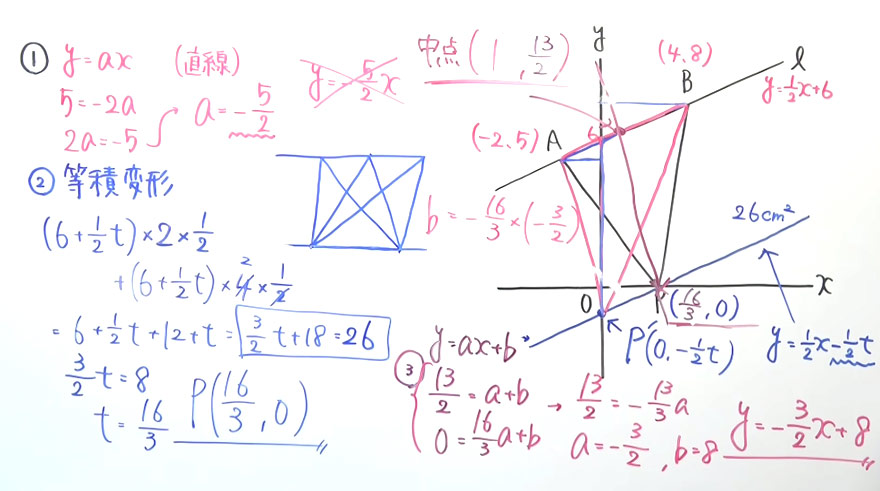 ① y=ax (直線)
5=-2a
2a=-5
a=-5/2
y=-5/2x
中点(1, 13/2)
② 等積変形
(6+1/2t)×2×1/2
+(6+1/2t)×4×1/2
2
=6+1/2t+12+t=3/2t+18=26
3/2t=8
t=16/3
P(16/3, 0)
b=-16/3×(-3/2)
y
(4、8)
B
l
y=1/2x+6
(-2、5) A
6
26cm²
x
O
(16/3, 0)
P'(0,-1/2t)
y=1/2x-1/2t
③ y=ax+b
13/2=a+b
0=16/3a+b
→ 13/2=-13/3a
a=-3/2, b=8
y=-3/2x+8